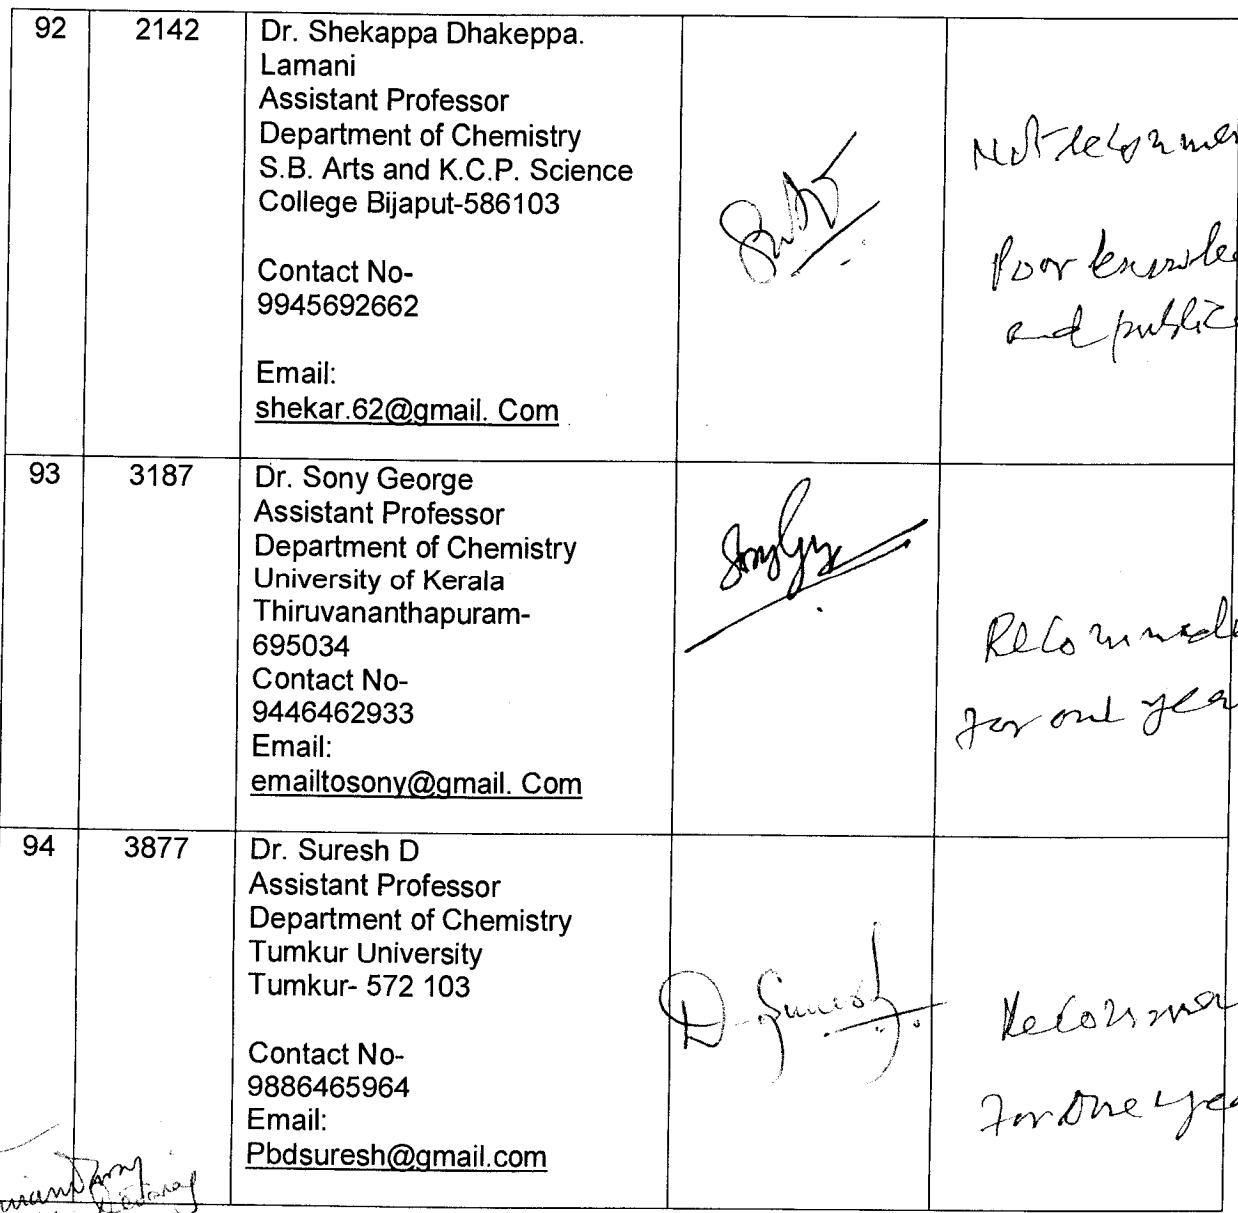 92 2142 Dr. Shekappa Dhakeppa.
Lamani
Assistant Professor
Department of Chemistry
S.B. Arts and K.C.P. Science
College Bijaput-586103
Contact No-
9945692662
Email:
shekar.62@gmail. Com
Not recommen
Poor knowle
and public
93 3187 Dr. Sony George
Assistant Professor
Department of Chemistry
University of Kerala
Thiruvananthapuram-
695034
Contact No-
9446462933
Email:
emailtosony@gmail. Com
Sony
Recommende
for one yea
94 3877 Dr. Suresh D
Assistant Professor
Department of Chemistry
Tumkur University
Tumkur- 572 103
Contact No-
9886465964
Email:
Pbdsuresh@gmail.com
D. Suresh
Recommen
For One yea